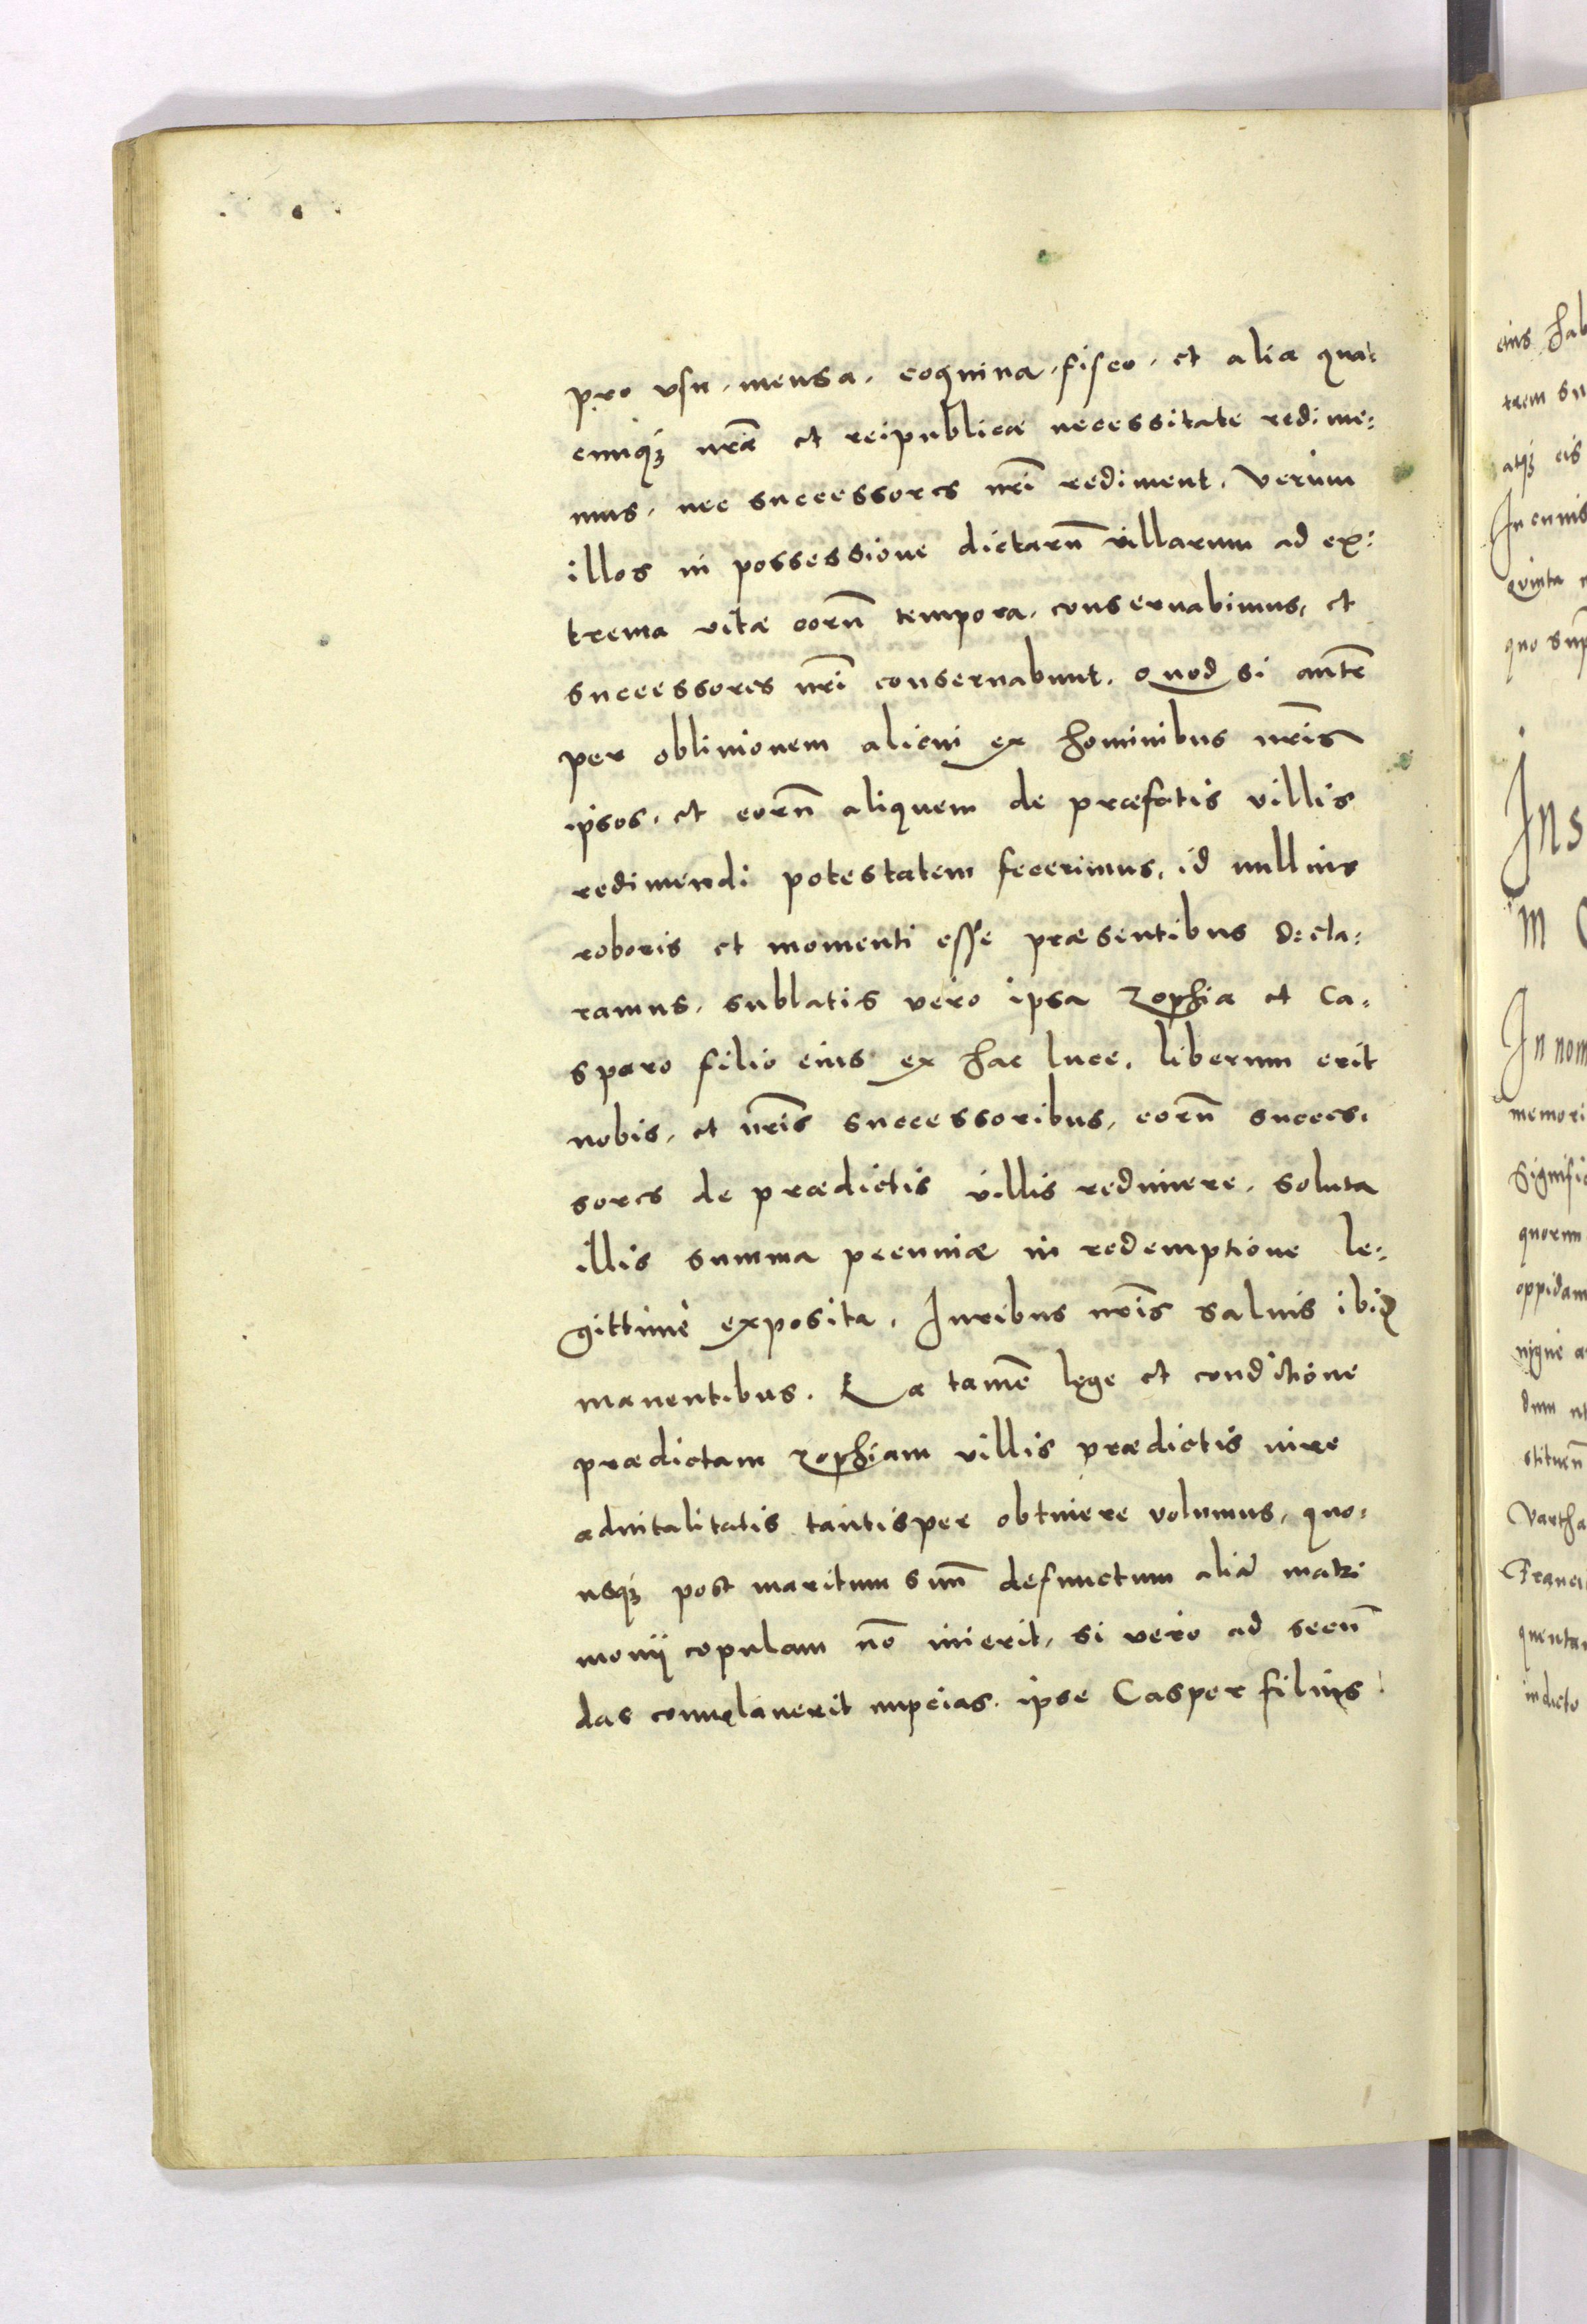 pro vsu, mensa, coquina, fisco, et alia qua:
cunq₃ nr̃a et reipublicæ necessitate redime:
mus, nec successores nr̃i rediment. Verum
illos in possessione dictarũ villarum ad ex:
trema vitæ eorũ tempora, conseruabimus, et
successores nr̃i conseruabunt. Quod si autẽ
per obliuionem alicui ex hominibus nr̃is
ipsos, et eorũ aliquem de præfatis villis
redimendi potestatem fecerimus, id nullius
roboris et momenti esse præsentibus decla:
ramus, sublatis vero ipsa Zophia et Ca:
sparo filio eius ex hac luce, liberum erit
nobis, et nr̃is successoribus, eorũ succes:
sores de prædictis villis redimere, soluta
illis summa pecuniæ in redemptione le:
gittimè exposita, Iuribus nr̃is saluis ibid
manentibus. Ea tamẽ lege et conditione
prædictam Zophiam villis prædictis iure
aduitalitatis tantisper obtinere volumus, quo:
usq₃ post maritum suũ defunctum aliã matri
monij copulam nõ inierit, si vero ad secũ
das conuolauerit nupcias. ipse Casper filius
eius hab
trem su
atq₃ eis
In cuius
quinta
quo sup
In s
m
In nom
memori
Signific
quorum
oppidam
nique a
dum ut
stituen
Vartha
Franci
quenta
indicto